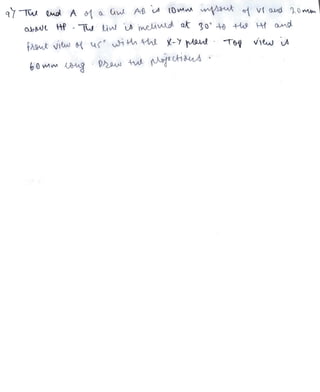 9) The end A of a line AB is 10mm infront of VP and 20mm
above HP. The line is inclined at 30° to the HP and
front view of 45° with the X-Y plane. Top view is
60mm long Draw the projections.